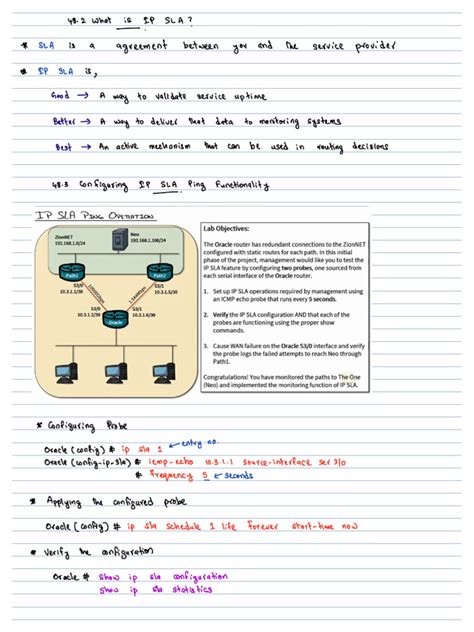 48.2 What is IP SLA?
* SLA is a agreement between you and the service provider
* IP SLA is,
Good → A way to validate service uptime
Better → A way to deliver that data to monitoring systems
Best → An active mechanism that can be used in routing decisions
48.3 Configuring IP SLA Ping Functionality
IP SLA PING OPERATION
ZionNET
192.168.1.0/24
Neo
192.168.1.100/24
Path1
S3/0
10.3.1.1/30
S3/1
100Mb/s
1.544Mb/s
10.3.1.2/30
S3/0
Oracle
Lab Objectives:
The Oracle router has redundant connections to the ZionNET
configured with static routes for each path. In this initial
phase of the project, management would like you to test the
IP SLA feature by configuring two probes, one sourced from
each serial interface of the Oracle router.
1. Set up IP SLA operations required by management using
an ICMP echo probe that runs every 5 seconds.
2. Verify the IP SLA configuration AND that each of the
probes are functioning using the proper show
commands.
3. Cause WAN failure on the Oracle S3/0 interface and verify
the probe logs the failed attempts to reach Neo through
Path1.
Congratulations! You have monitored the paths to The One
(Neo) and implemented the monitoring function of IP SLA.
* Configuring Probe
Oracle (config) # ip sla 1 ← entry no.
Oracle (config-ip-sla) # icmp-echo 10.3.1.1 source-interface ser 3/0
# frequency 5 ← seconds
* Applying the configured probe
Oracle (config) # ip sla schedule 1 life forever start-time now
* Verify the configuration
Oracle # show ip sla configuration
show ip sla statistics